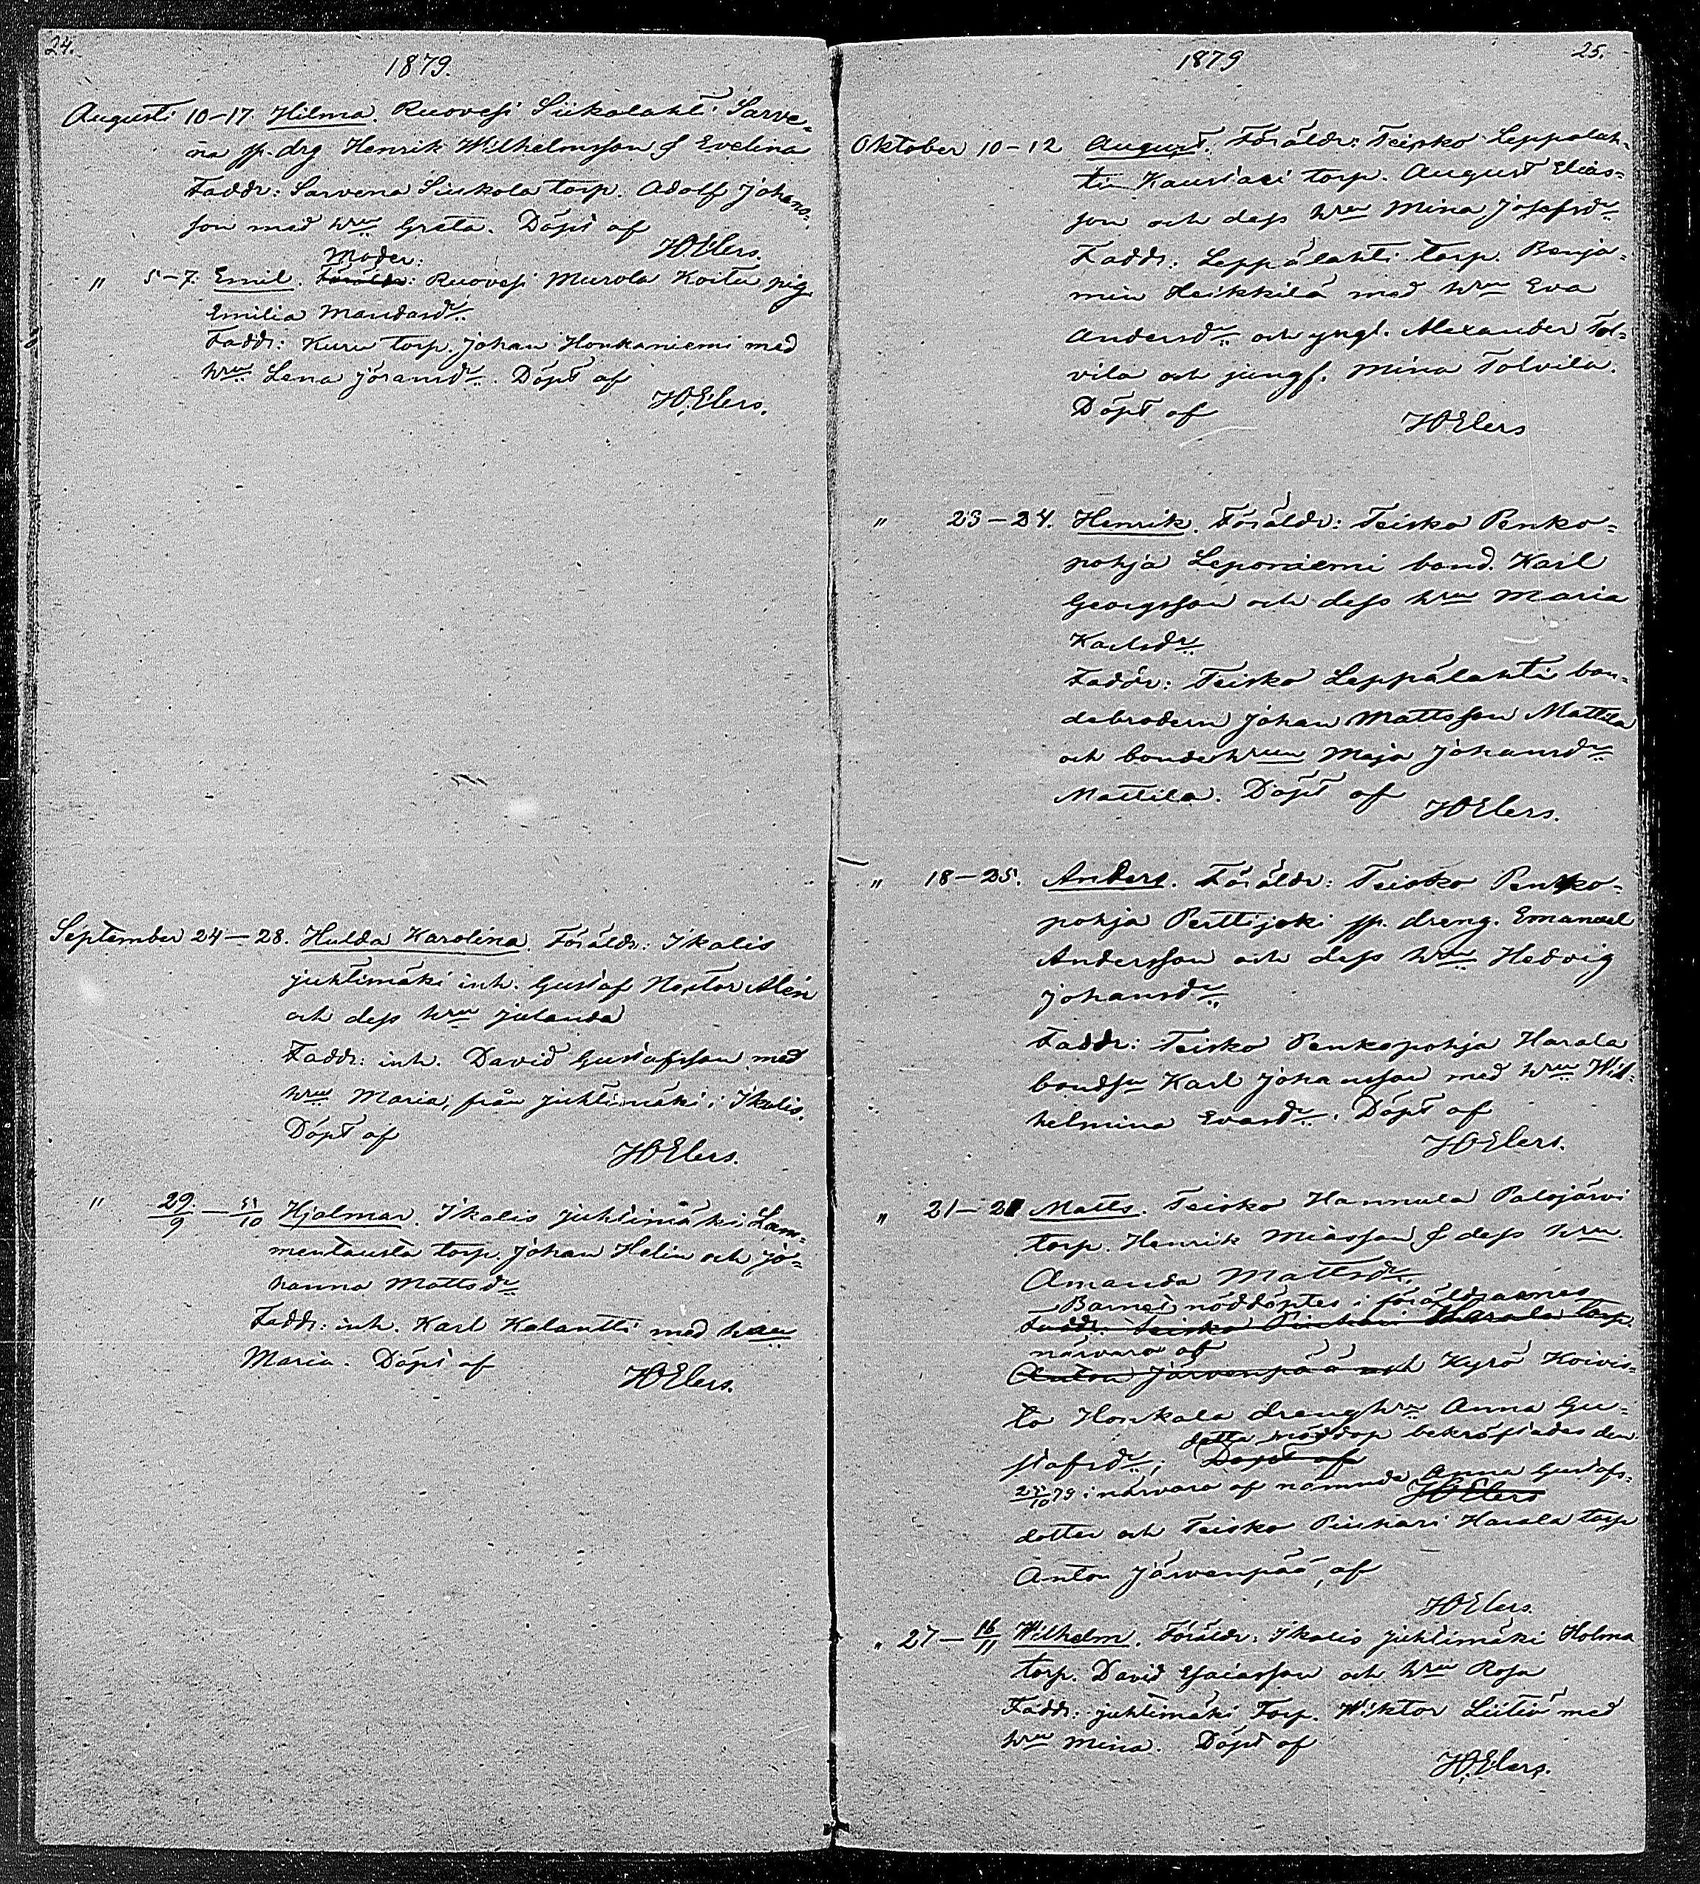 24.
1879.
Augusti 10-17. Hilma. Ruovesi Siikalahti Sarve-
na sp. drg Henrik Wilhelmsson & Evelina
Faddr: Sarvena Siukola torp. Adolf Johans-
son med hru Greta. Döpt af
HOElers.
Moder:
" 5-7. Emil. Föräldr: Ruovesi Murola Koitu pig.
Emilia Mandasdr.
Faddr: Kuru torp. Johan Honkaniemi med
hru Lena Göransdr. Döpt af
HOElers.
September 24-28. Hulda Karolina. Föräldr: Ikalis
Juhtimäki inh. Gustaf Nestor Alén
och dess hru Julanda
Faddr: inh. David Gustafsson med
hru Maria, från Juhtimäki i Ikalis.
Döpt af
HOElers.
" 29/9 - 5/10 Hjalmar. Ikalis Juhtimäki Lam-
mentausta torp. Johan Helin och Jo-
hanna Mattsdr
Faddr: inh. Karl Kalantti med hru
Maria. Döpt af
HOElers.
1879
25.
Oktober 10-12 August. Föräldr: Teisko Leppälah-
tin torp. August Elias-
son och dess hru Mina Josefsdr
Faddr: Leppälahti torp. Benja-
min Heikkilä med hru Eva
Andersdr och yngl. Alexander Tol-
vila och jungf. Mina Tolvila.
Döpt af
HOElers
" 23-24. Henrik. Föräldr: Teisko Penko-
pohja Leponiemi bond. Karl
Georgsson och dess hru Maria
Karlsdr
Faddr: Teisko Leppälahti bon-
debrodern Johan Mattsson Mattila
och bondehrun Maja Johansdr
Mattila. Döpt af
HOElers.
" 18-25. Anders. Föräldr: Teisko Penko-
pohja Perttijoki sp. dreng. Emanuel
Andersson och dess hru Hedvig
Johansdr
Faddr: Teisko Penkopohja Harala
bondsn Karl Johansson med hru Wil-
helmina Evasdr. Döpt af
HOElers.
" 21-21 Matts. Teisko Hannula Palojärvi
torp. Henrik Miasson & dess hru
Amanda Mattsdr.
Barnet nöddöptes i föräldrarnes
Faddr: Teisko Harala torp.
närvaro af
Anton Järvenpää och Kyrö Koivis-
to Honkala drenghru Anna Gu-
detta nöddop bekräftades den
stafsdr; Döpt af
25/10 79 i närvaro af nämnda Anna Gustafs-
HOElers
dotter och Teisko Pirkiari Harala torp
Anton Järvenpää, af
HOElers.
" 27-16/11 Wilhelm. Föräldr: Ikalis Juhtimäki Holma
torp. David Esaiasson och hru Rosa
Faddr: Juhtimäki Torp. Wiktor Liitiö med
hru Mina. Döpt af
HOElers.